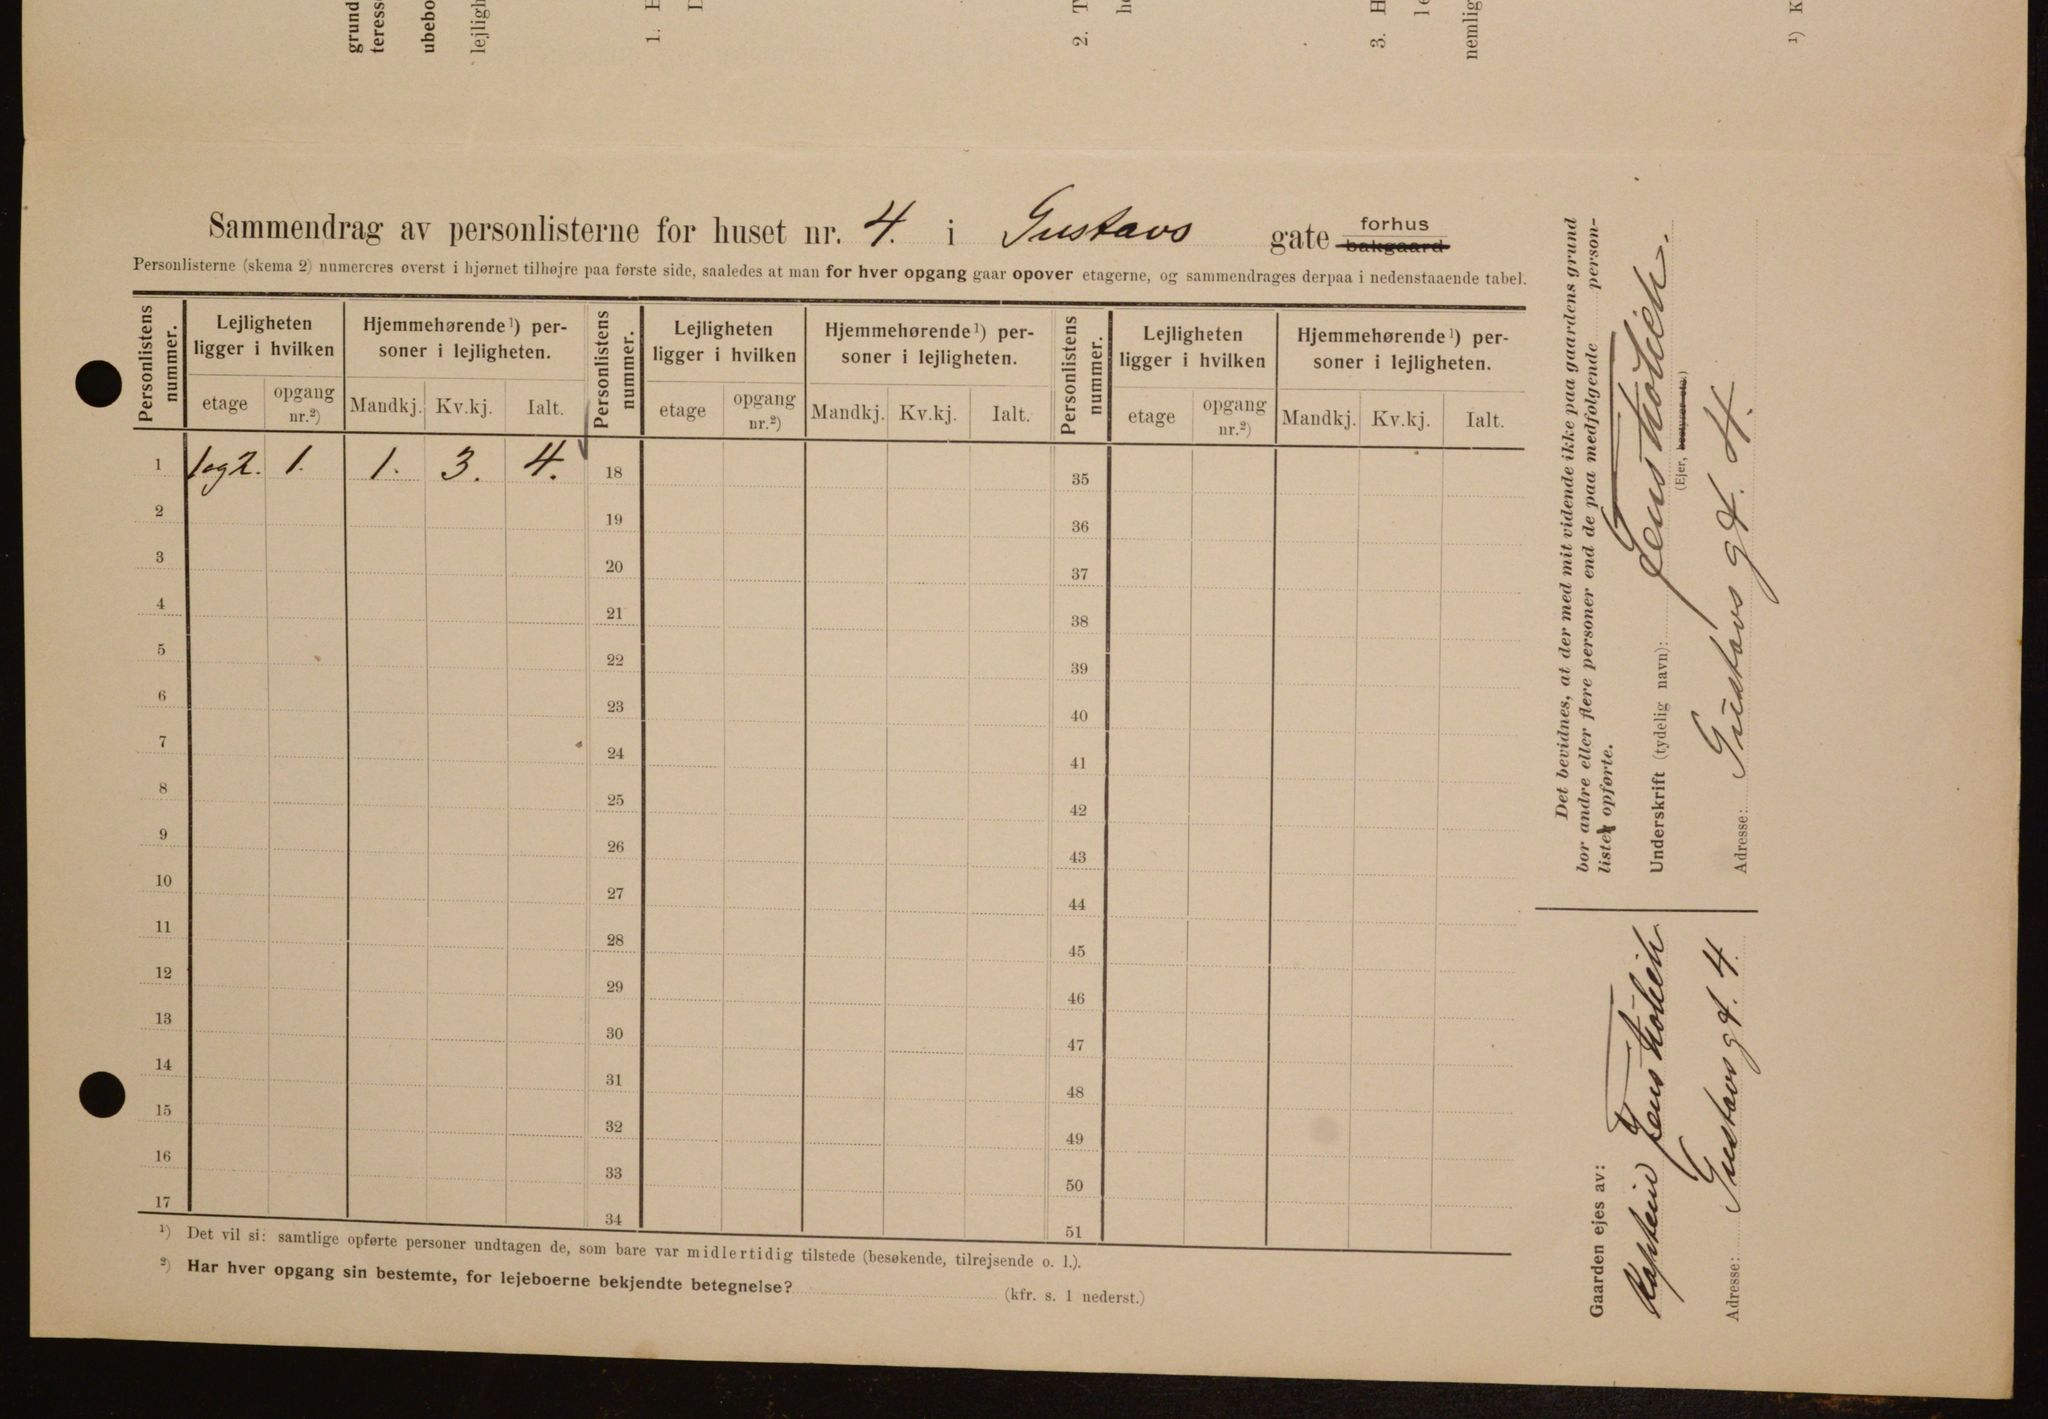 grund
teresse
ubebo
lejligh
1. 
2. T
3. H
nemlig
¹) K
Sammendrag av personlisterne for huset nr. 4. i Gustavs gate forhus bakgaard
Personlisterne (skema 2) numereres øverst i hjørnet tilhøjre paa første side, saaledes at man for hver opgang gaar opover etagerne, og sammendrages derpaa i nedenstaaende tabel.
Personlistens nummer. Lejligheten ligger i hvilken Hjemmehørende¹) personer i lejligheten. Personlistens nummer. Lejligheten ligger i hvilken Hjemmehørende¹) personer i lejligheten. Personlistens nummer. Lejligheten ligger i hvilken Hjemmehørende¹) personer i lejligheten.
etage opgang nr.²) Mandkj. Kv.kj. Ialt. etage opgang nr.²) Mandkj. Kv.kj. Ialt. etage opgang nr.²) Mandkj. Kv.kj. Ialt.
1 1 og 2. 1. 1. 3. 4. 18 35
2 19 36
3 20 37
4 21 38
5 22 39
6 23 40
7 24 41
8 25 42
9 26 43
10 27 44
11 28 45
12 29 46
13 30 47
14 31 48
15 32 49
16 33 50
17 34 51
¹) Det vil si: samtlige opførte personer undtagen de, som bare var midlertidig tilstede (besøkende, tilrejsende o. l.).
²) Har hver opgang sin bestemte, for lejeboerne bekjendte betegnelse? (kfr. s. 1 nederst.)
Det bevidnes, at der med mit vidende ikke paa gaardens grund
bor andre eller flere personer end de paa medfølgende person-
lister opførte.
Underskrift (tydelig navn): Jens
(Ejer, bestyrer etc.)
Adresse: Gustavs gt. 4.
Gaarden ejes av:
Kaptein Jens
Adresse: Gustavs gt. 4.